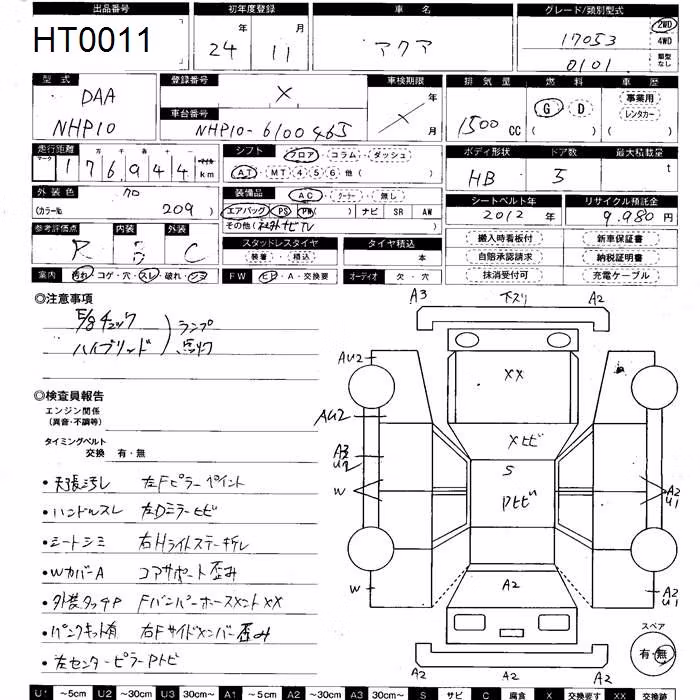 出品番号 初年度登録 車名 グレード/類別型式
HT0011 24年 11月 アクア 17053 0101 2WD 4WD 類型なし
型式 登録番号 車検期限 排気量 燃料 車歴
DAA NHP10 X 年 月 1500cc G・D ( ) 事業用 レンタカー ( )
車台番号 NHP10-6100465
走行距離 シフト フロア・コラム・ダッシュ ボディ形状 ドア数 最大積載量
マーク 十万千百十一 176944 マイル km AT・MT 4 5 6 他( ) HB 5 t
外装色 70 装備品 AC・クーラー・無し シートベルト年 リサイクル預託金
(カラー№ 209) エアバッグ PS PW( ) ナビ SR AW 2012年 9,980円
その他(社外ナビTV )
参考評価点 内装 外装 スタッドレスタイヤ タイヤ積込 搬入時看板付 新車保証書
R B C 装着・積込 本 自賠承認請求 納税証明書
室内 汚れ・コゲ・穴・スレ・破れ・シミ FW ヒビ・A・交換要 オーディオ 欠・穴 抹消受付可 充電ケーブル
◎注意事項
E/gチェック
ハイブリッド ) ランプ点灯
◎検査員報告
エンジン関係
(異音・不調等)
タイミングベルト
交換 有・無
・天張汚し 左Fピラーペイント
・ハンドルスレ 左Dミラーヒビ
・シートシミ 右Hライトステーキレ
・WカバーA コアサポート歪み
・外装タッチP FバンパーホースメントXX
・パンクキット有 右Fサイドメンバー歪み
・左センターピラーPトビ
A3 下ズリ A2
AU2 XX
AU2 Xヒビ
A3 U2 S
W Pヒビ A2 U1
W A2 A2 U1
A2 A2
スペア
有・無
U1 ~5cm U2 ~30cm U3 30cm~ A1 ~5cm A2 ~30cm A3 30cm~ S サビ C 腐食 X 交換要す XX 交換跡